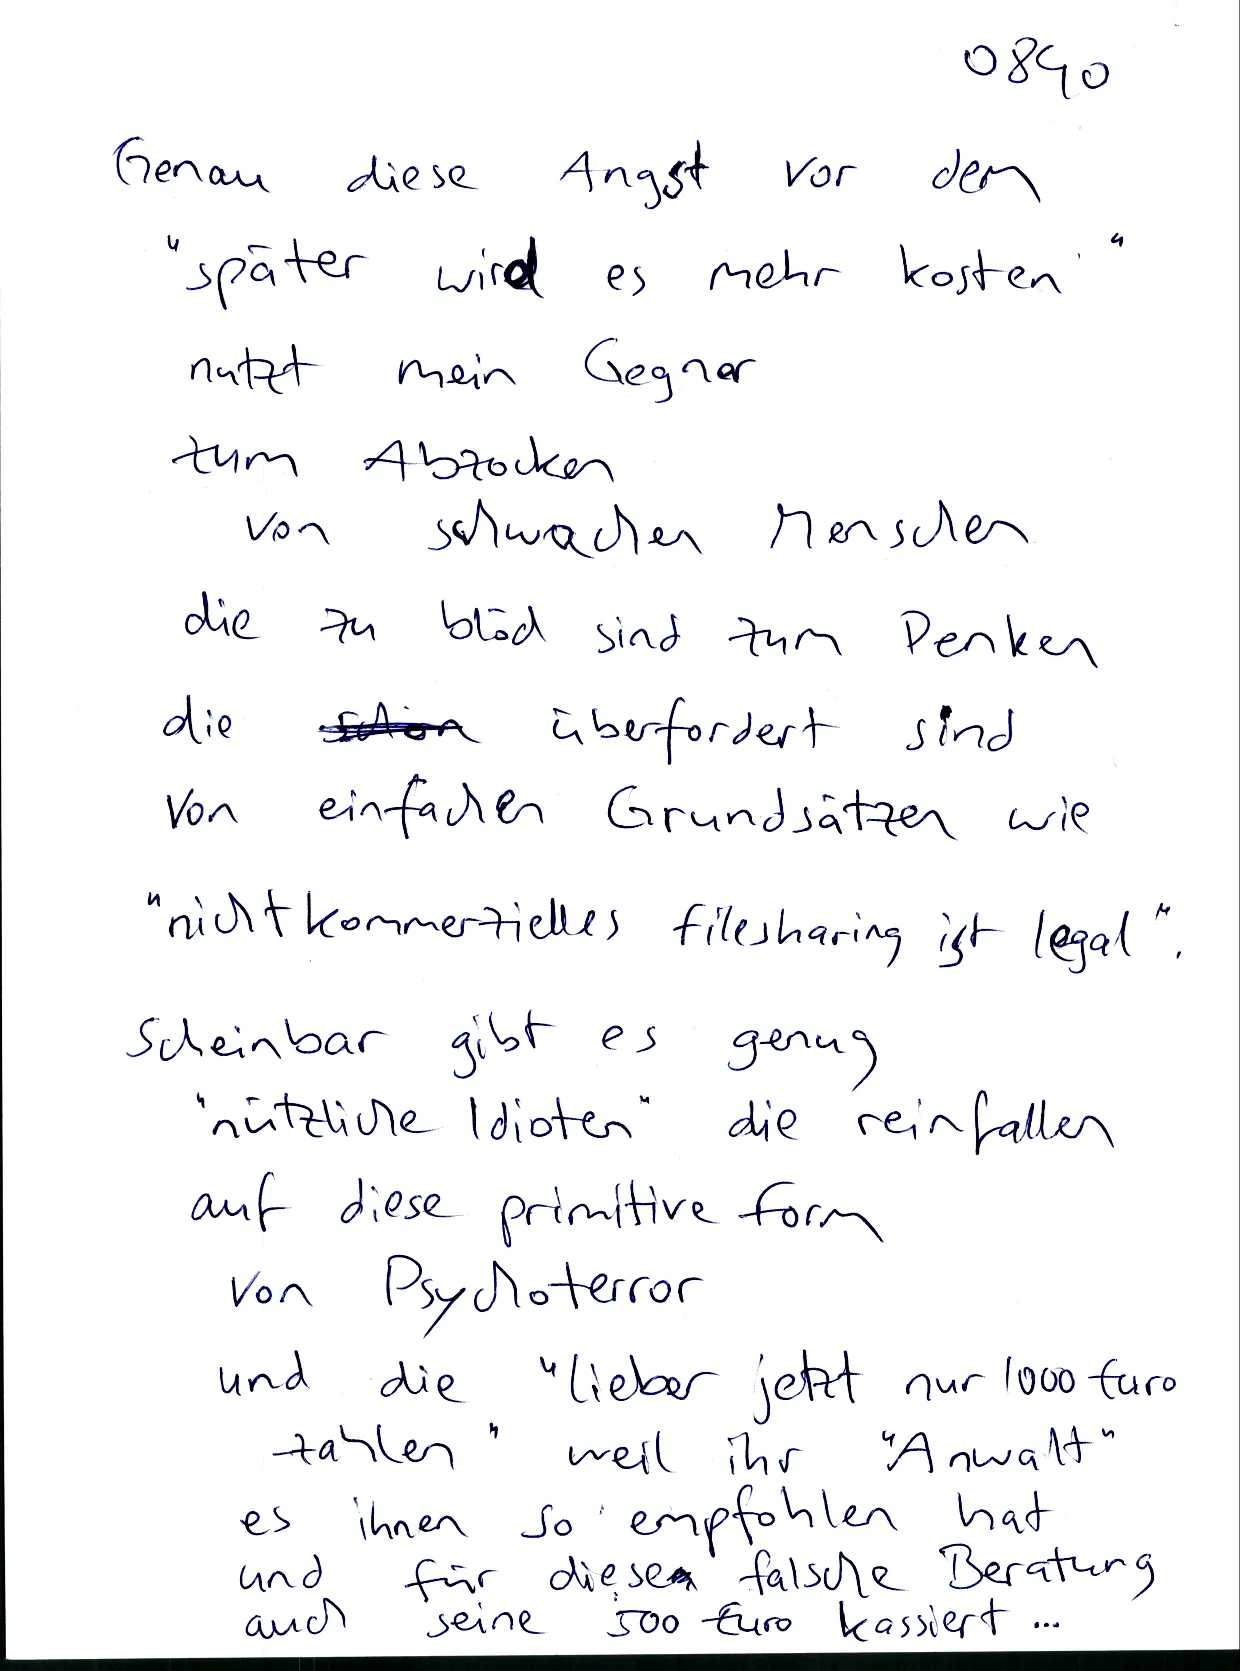 0840
Genau diese Angst vor dem
"später wird es mehr kosten"
nutzt mein Gegner
zum Abzocken
von schwachen Menschen
die zu blöd sind zum Denken
die schon überfordert sind
von einfachen Grundsätzen wie
"nichtkommerzielles filesharing ist legal".
Scheinbar gibt es genug
"nützliche Idioten" die reinfallen
auf diese primitive Form
von Psychoterror
und die "lieber jetzt nur 1000 Euro
zahlen" weil ihr "Anwalt"
es ihnen so empfohlen hat
und für diese falsche Beratung
auch seine 500 Euro kassiert ...